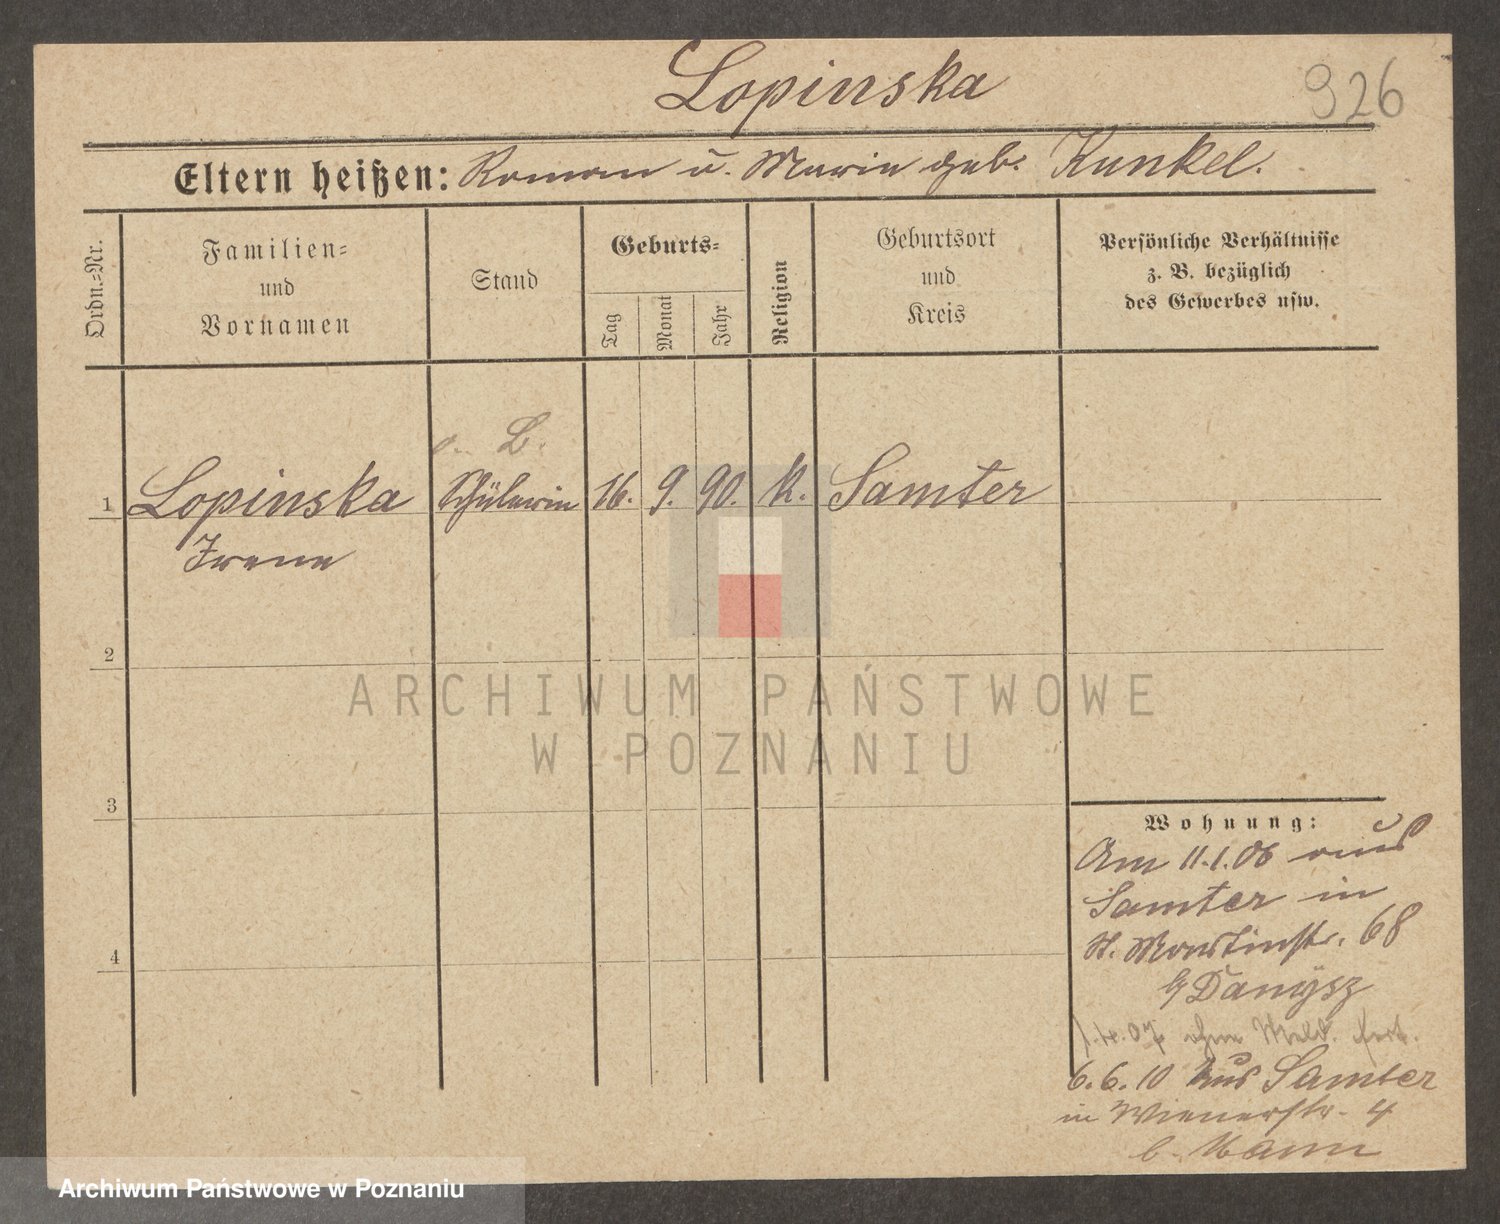 Lopinska
926
Eltern heißen: Roman u. Marie geb. Kunkel.
Ordn.-Nr.
Familien-
und
Vornamen
Stand
Geburts-
Tag
Monat
Jahr
Religion
Geburtsort
und
Kreis
Persönliche Verhältnisse
z. B. bezüglich
des Gewerbes usw.
o. L.
1 Lopinska Schülerin 16. 9. 90. k. Samter
Irene
2
3
4
Wohnung:
Am 11.1.06 aus
Samter in
St. Martinstr. 68
b/ Danysz
1.4.07 ohne Meld. fort.
6.6.10 aus Samter
in Wienerstr. 4
b. Mann
ARCHIWUM PAŃSTWOWE
W POZNANIU
Archiwum Państwowe w Poznaniu